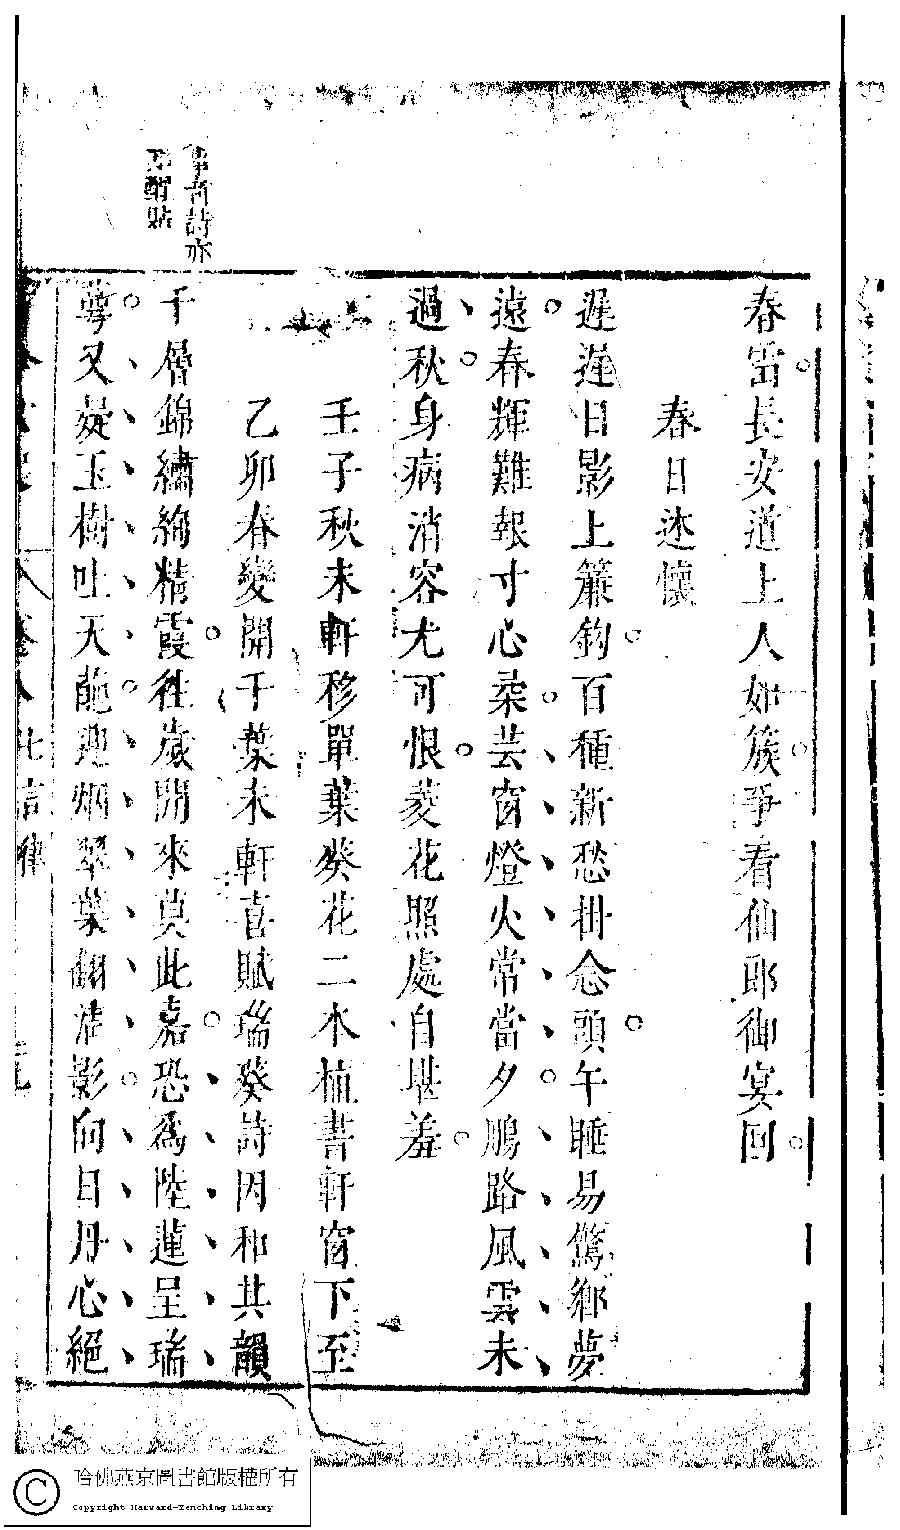 春雷長安道上人如簇爭看仙郎御宴回
春日述懷
遲遲日影上簾鈎百種新愁掛念頭午睡易驚鄉夢
遠春輝難報寸心柔芸窗燈火常當夕鵬路風雲未
過秋身病消容尤可恨菱花照處自堪羞
壬子秋未軒移單葉葵花二本植書軒窗下至
乙卯春變開千葉未軒喜賦瑞葵詩因和其韻
千層錦繡絢精霞徃歲開來莫此嘉恐爲陸蓮呈瑞
萼又疑玉樹吐天葩迎烟翠葉翻清影向日丹心絕
詩亦
貼
卷八 七言律
哈佛燕京圖書館版權所有
Copyright Harvard-Yenching Library